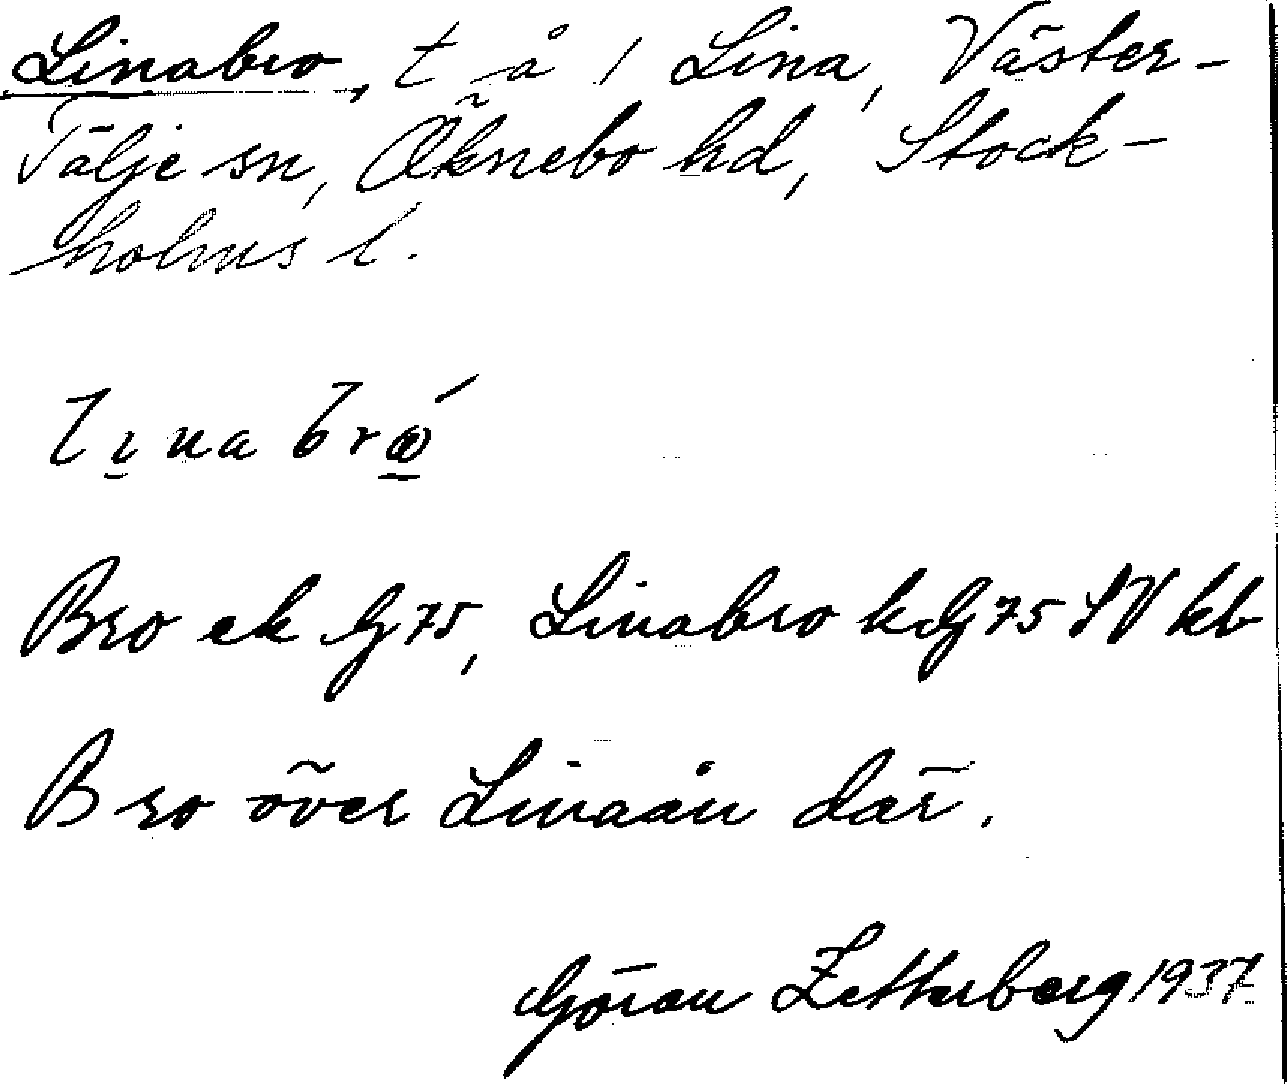 Linabro, t å 1 Lina, Väster-
Tälje sn, Öknebo hd, Stock-
holms l.
lina bró
Bro ek G75, Linabro k G75 SV kb
Bro över Linaån där.
Göran Zetterberg 1937